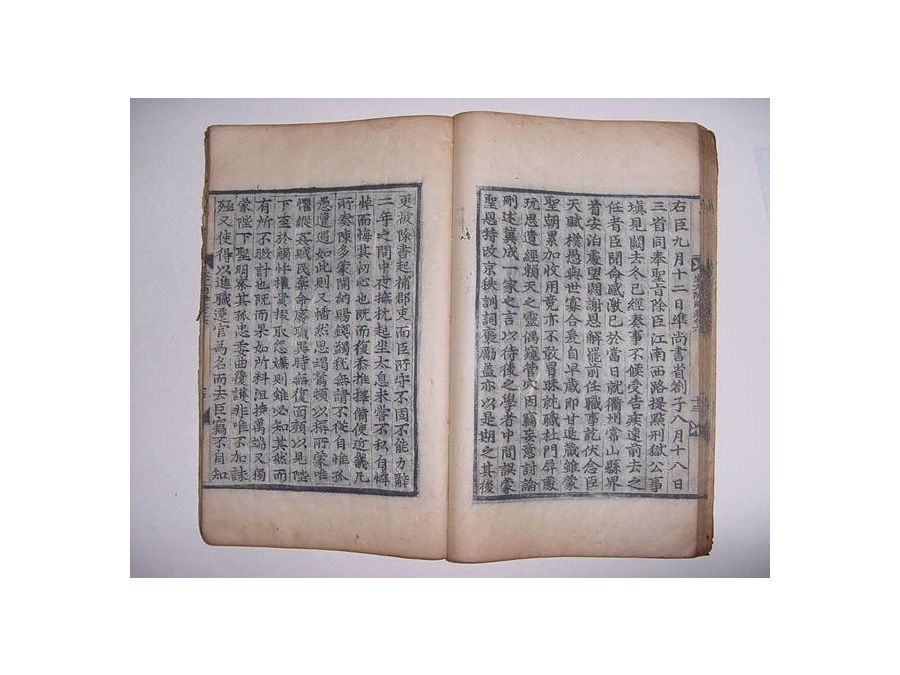 右臣九月十二日準尚書省劄子八月十八日
三省同奉聖旨除臣江南西路提點刑獄公事
塡見闕去冬已經奏事不候受告疾速前去之
任者臣聞命感激已於當日就衢州常山縣界
首安泊庵望闕謝恩解罷前任職事訖伏念臣
天賦樸愚與世寡合爰自早歲即甘退藏雖蒙
聖朝累加收用竟亦不敢冒昧就職杜門屏處
玩思遺經賴天之靈偶窺管穴因竊妄意討論
刪述冀成一家之言以待後之學者中間誤蒙
聖恩特改京秩訓詞褒勵蓋亦以是期之其後
更被除書起補郡吏而臣所守不固不能力辭
二年之間中夜撫枕起坐太息未嘗不私自憐
悼而悔其初心也既而復忝推擇備使近畿凡
所奏陳多蒙開納賜錢蠲稅無請不從自惟孤
愚遭遇如此則又幡然思竭駑頓以稱所蒙唯
懼縱姦賊民棄命廢職異時無復面顔以見陛
下至於觸忤權貴掇取怨嫌則雖必知其然而
有所不暇計也既而果如所料沮撓萬端又獨
蒙陛下聖明察其孤忠委曲覆護非唯不加誅
殛又使得以進職遷官為名而去臣竊不自知